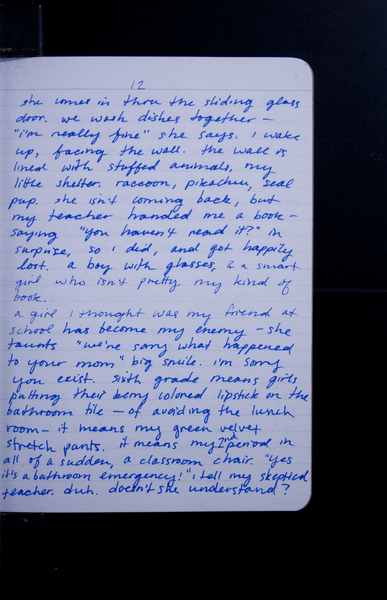 12
she comes in thru the sliding glass
door. we wash dishes together –
"i'm really fine" she says. i wake
up, facing the wall. the wall is
lined with stuffed animals, my
little shelter. raccoon, pikachu, seal
pup. she isn't coming back, but
my teacher handed me a book –
saying "you haven't read it?" in
surprise, so i did, and got happily
lost. a boy with glasses, & a smart
girl who isn't pretty my kind of
book.
a girl i thought was my friend at
school has become my enemy – she
taunts "we're sorry what happened
to your mom" big smile. i'm sorry
you exist. sixth grade means girls
putting their berry colored lipstick on the
bathroom tile – of avoiding the lunch
room – it means my green velvet
stretch pants. it means my 2nd period in
all of a sudden, a classroom chair. "yes
it's a bathroom emergency!" i tell my skeptical
teacher. duh. doesn't she understand?